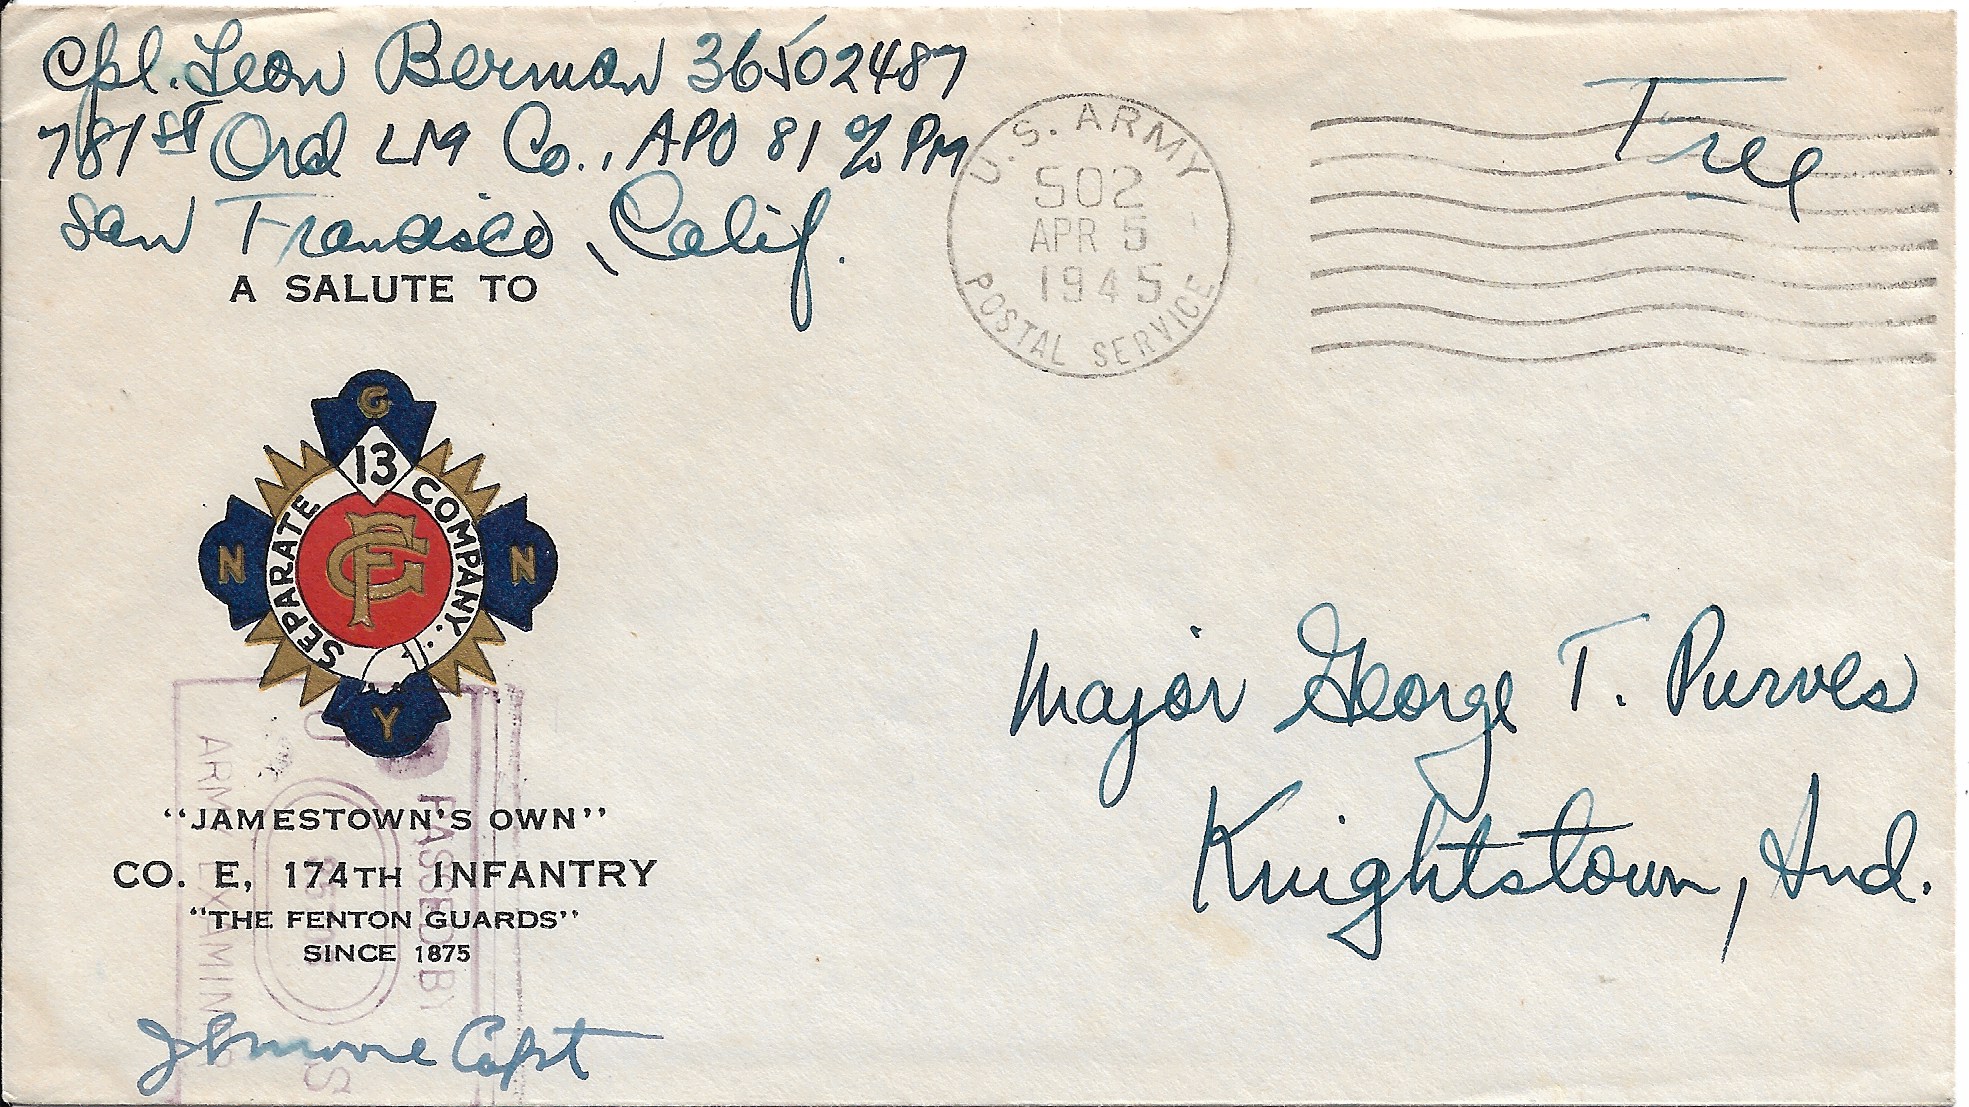 Cpl. Leon Berman 36502487
781st Ord LM Co., APO 81 % PM
San Francisco, Calif.
Free
U.S. ARMY
502
APR 5
1945
POSTAL SERVICE
A SALUTE TO
G
13
SEPARATE COMPANY.
N
FG
N
Y
Major George T. Purves
Knightstown, Ind.
"JAMESTOWN'S OWN"
CO. E, 174TH INFANTRY
"THE FENTON GUARDS"
SINCE 1875
PASSED BY
ARMY EXAMINER
Capt